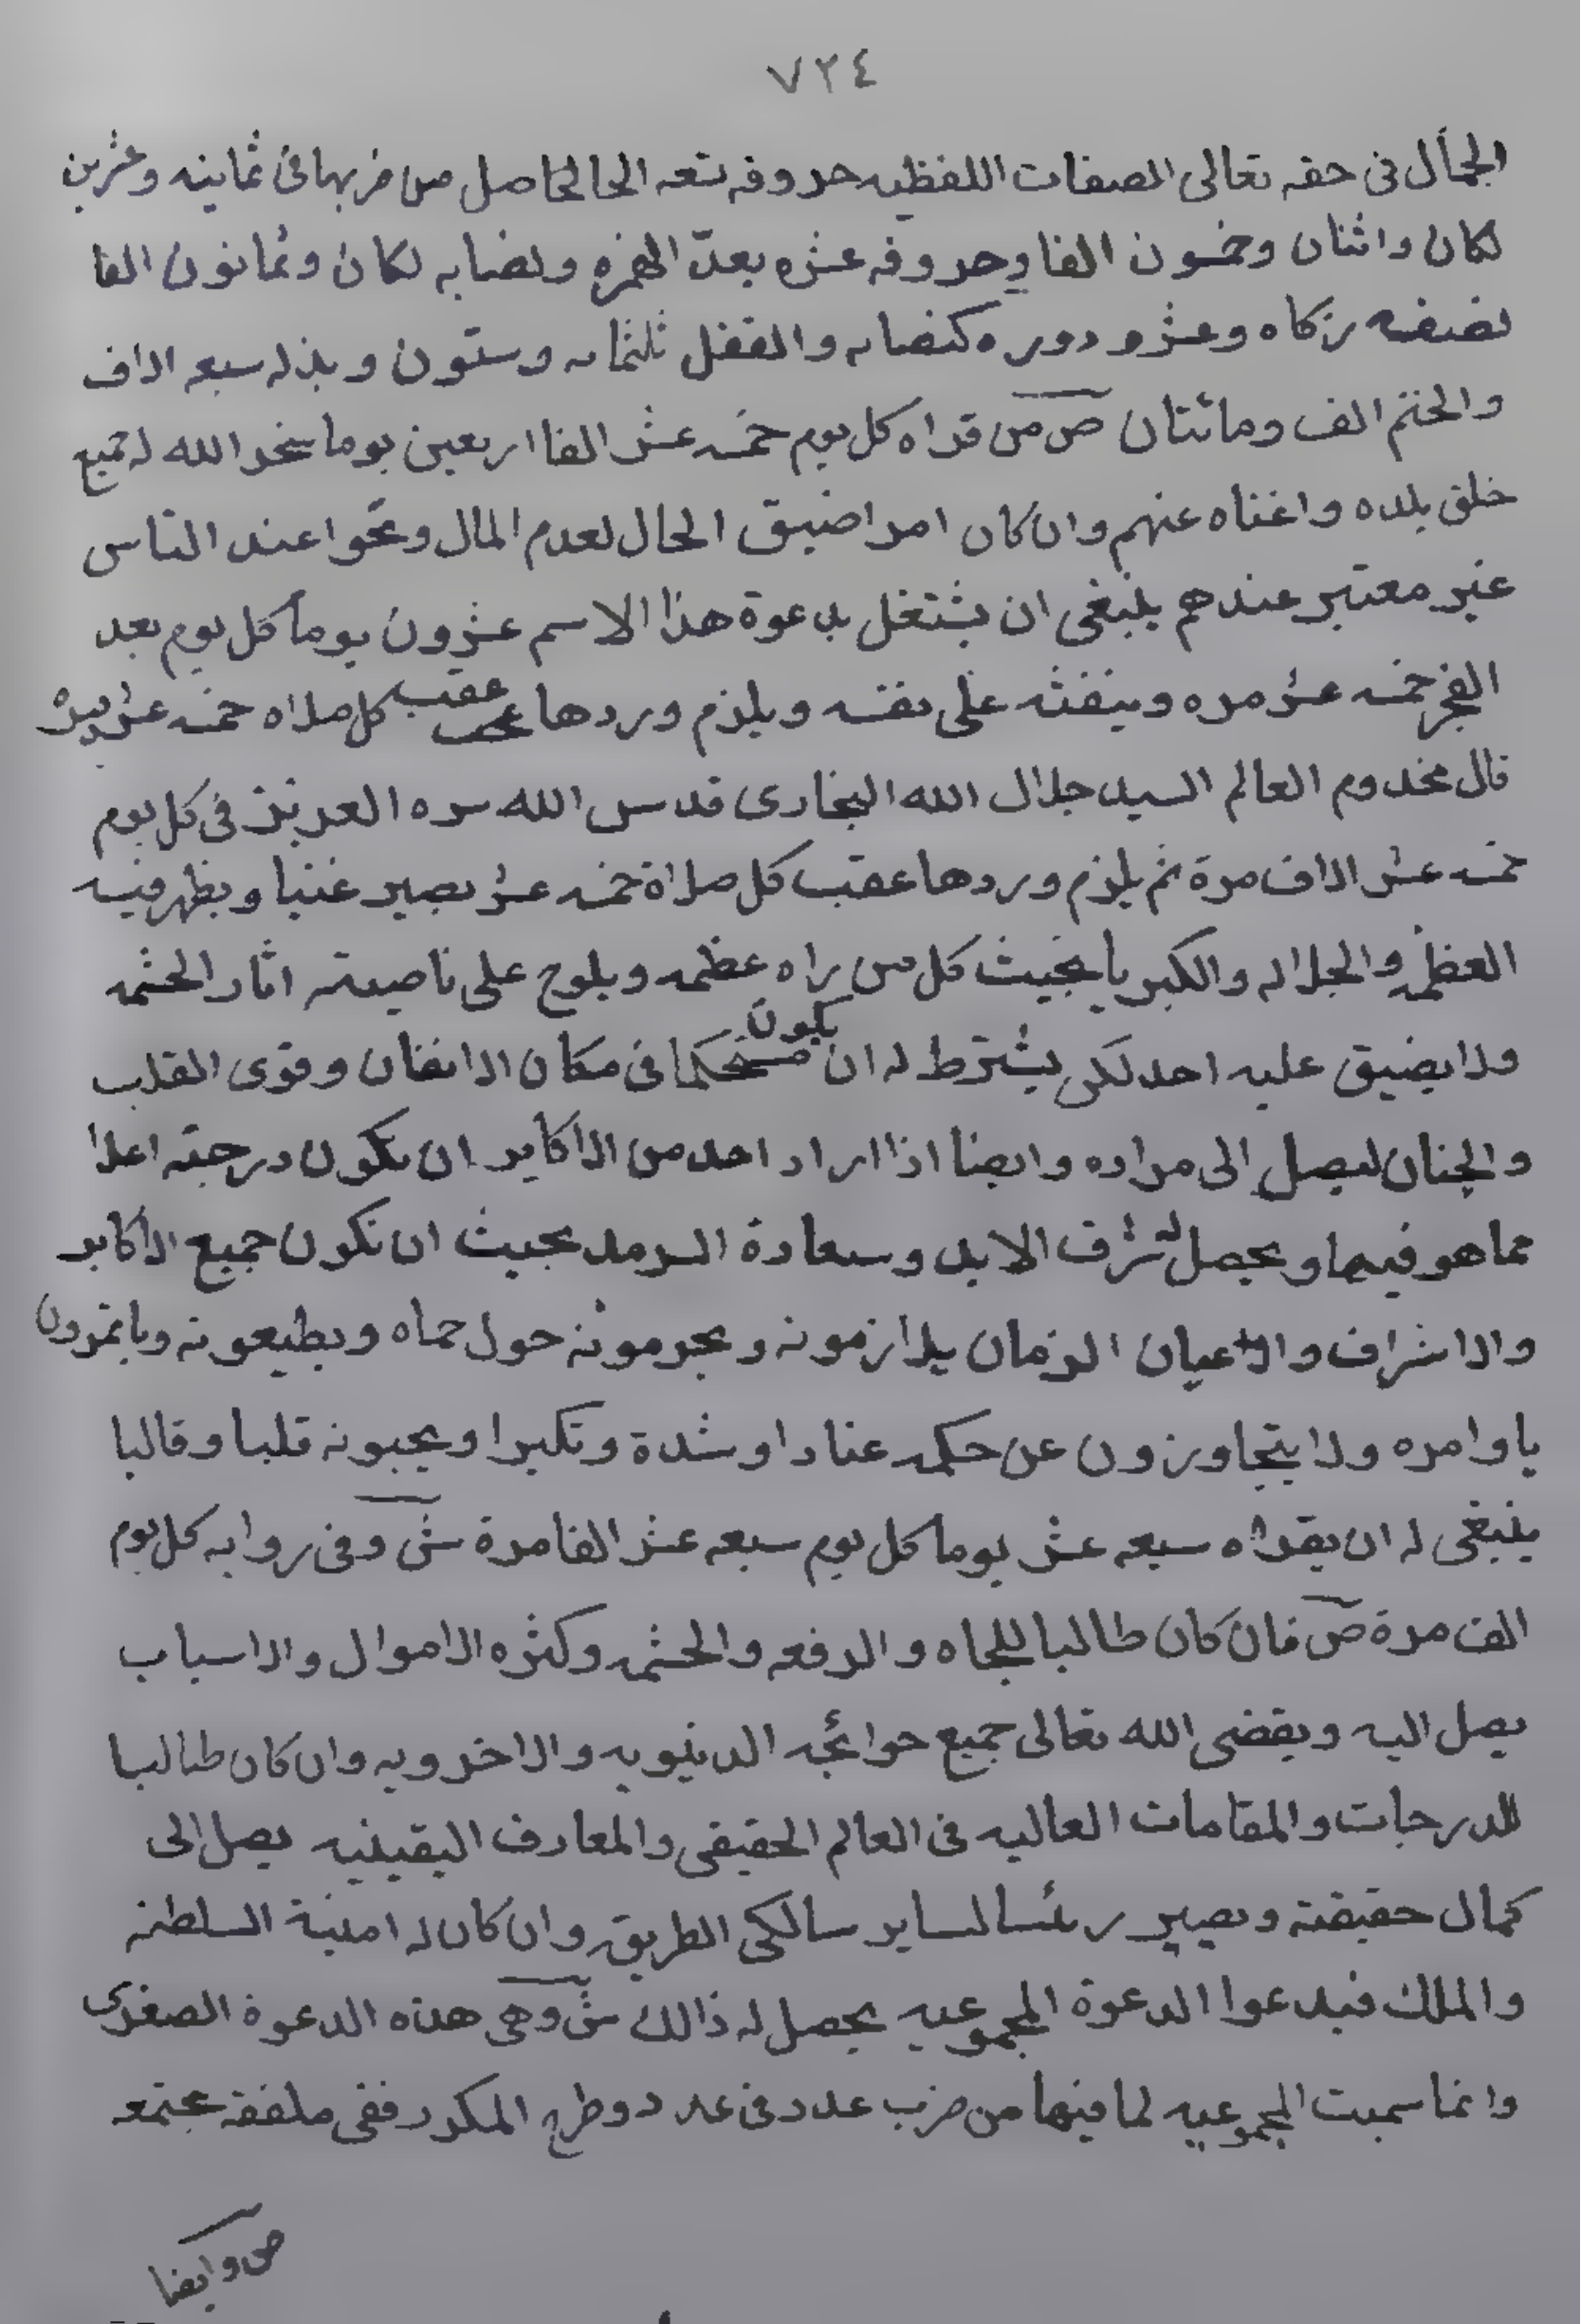 ٧٢٤
الجمال فى حقه تعالى الصفات اللفظيه حروفه تسعه الحا لحاصل من ضربها فى ثمانيه وعشرين
لكان واثنان وخمسون الفا وحروفه عشره بعدّ الهمزه ونصابه لكان وثمانون الفا
نصفه زكاه وعشره دوره كنصابه والقفل ثلثمايه وستون وبذله سبعه الاف
والختم الف ومائتان ص من قراه كل يوم خمسه عشر الفا اربعين يوما سخر الله له جميع
خلق بلده واغناه عنهم وان كان امرا ضيق الحال لعدم المال و عند الناس
غير معتبر عندهم ينبغى ان يشتغل بدعوة هذا الاسم عشرون يوما كل يوم بعد
الفجر خمسه عشر مره وينفثه على نفسه ويلزم وردها عقب كل صلاه خمسه عشر مره
قال مخدوم العالم السيد جلال الله البخارى قدس الله سره العزيز فى كل يوم
خمسه عشر الاف مرة ثم يلزم وردها عقب كل صلاة خمسه عشر يصير غنيا ويظهر فيه
العظمه والجلاله والكبريا بحيث كل من يراه عظمه ويلوح على ناصيته اثار الحشمه
ولا يضيق عليه احد لكى يشترط له ان يكون مستحكما فى مكان الاتقان وقوى القلب
والجنان ليصل الى مراده وايضا اذا اراد احد من الاكابر ان تكون درجته اعلا
مما هو فيها ويحصل له شرف الابد وسعادة السرمد بحيث ان تكون جميع الاكابر
والاشراف والاعيان الزمان يلازمونه ويحرمونه حول حماه ويطيعونه وياتمرون
باوامره ولا يتجاوزون عن حكمه عنادا وشدة وتكبرا ويحبونه قلبا وقالبا
ينبغى له ان يقراه سبعه عشر يوما كل يوم سبعه عشر الفا مرة ش وفى روايه كل يوم
الف مرة ص فان كان طالبا للجاه والرفعه والحشمه وكثره الاموال والاسباب
يصل اليه ويقضى الله تعالى جميع حوائجه الدنيويه والاخرويه وان كان طالبا
للدرجات والمقامات العاليه فى العالم الحقيقى والمعارف اليقينيه يصل الى
كمال حقيقته ويصير رئسا لساير سالكى الطريق وان كان له امنية السلطنه
والملك فيدعوا الدعوة المجموعيه يحصل له ذالك ش وهى هذه الدعوة الصغرى
وانما سميت المجموعيه لما فيها من ضرب عدد فى عدد وطرح المكرر ففى ملفقه مجتمعه
ص وايضا